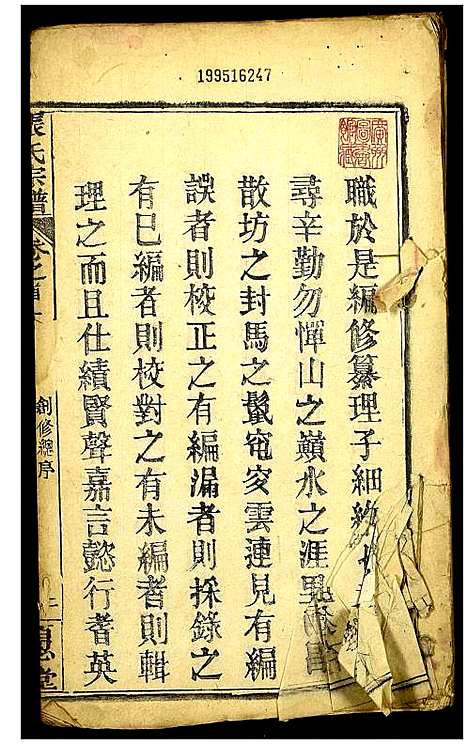 199516247
職於是編修纂理子細
尋辛勤勿憚山之巔水之涯
散坊之封馬之鬛窀穸雲連見有編
誤者則校正之有編漏者則採錄之
有已編者則校對之有未編者則輯
理之而且仕績賢聲嘉言懿行耆英
張氏宗譜
卷之首
創修總序
堂